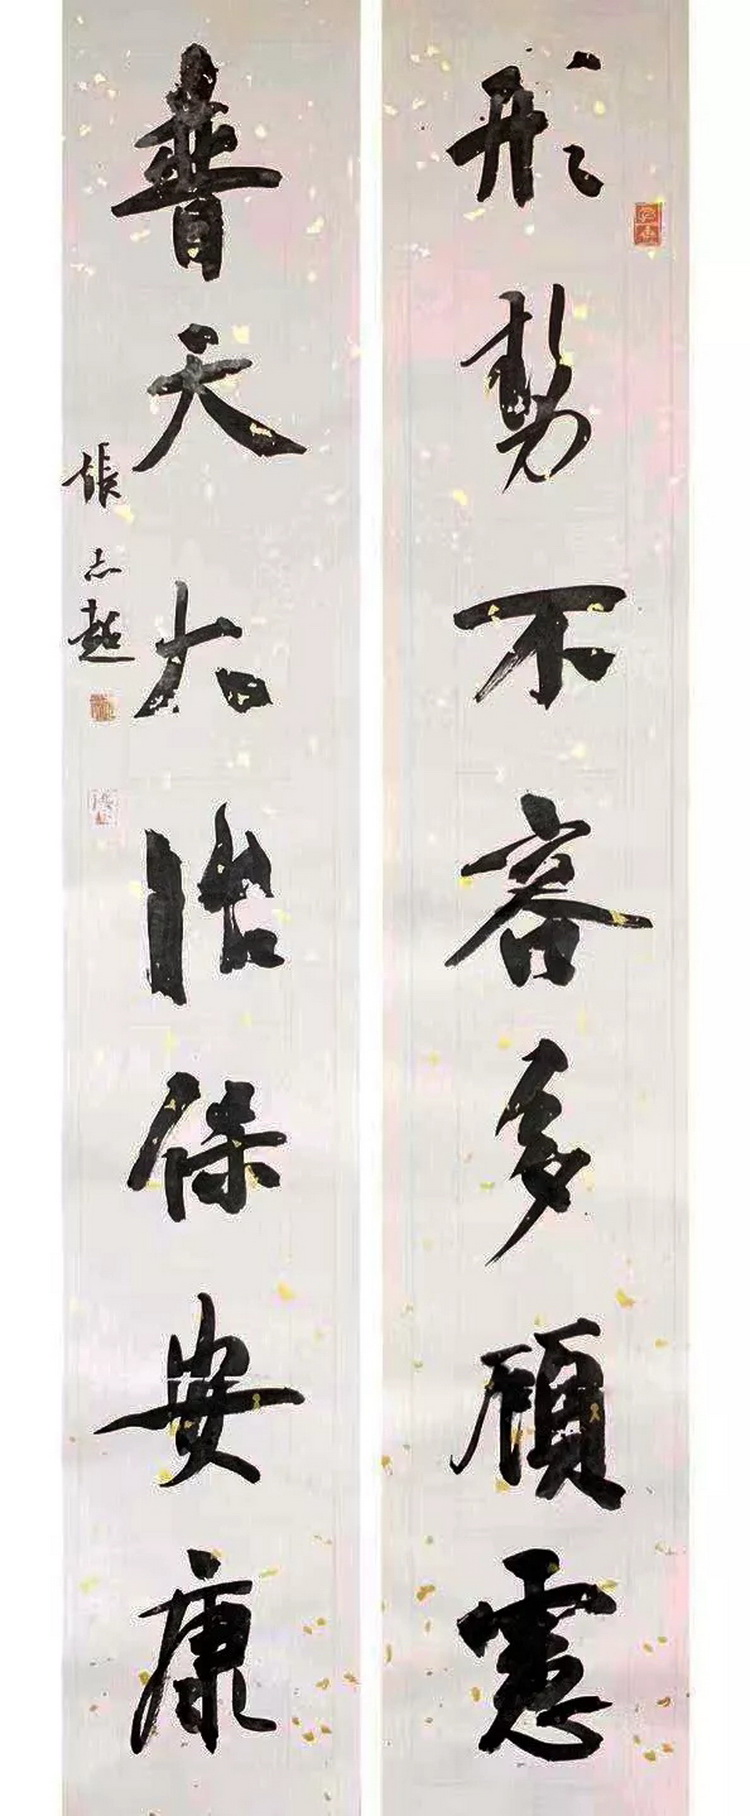 形勢不容多顧慮
普天大治保安康
張志越